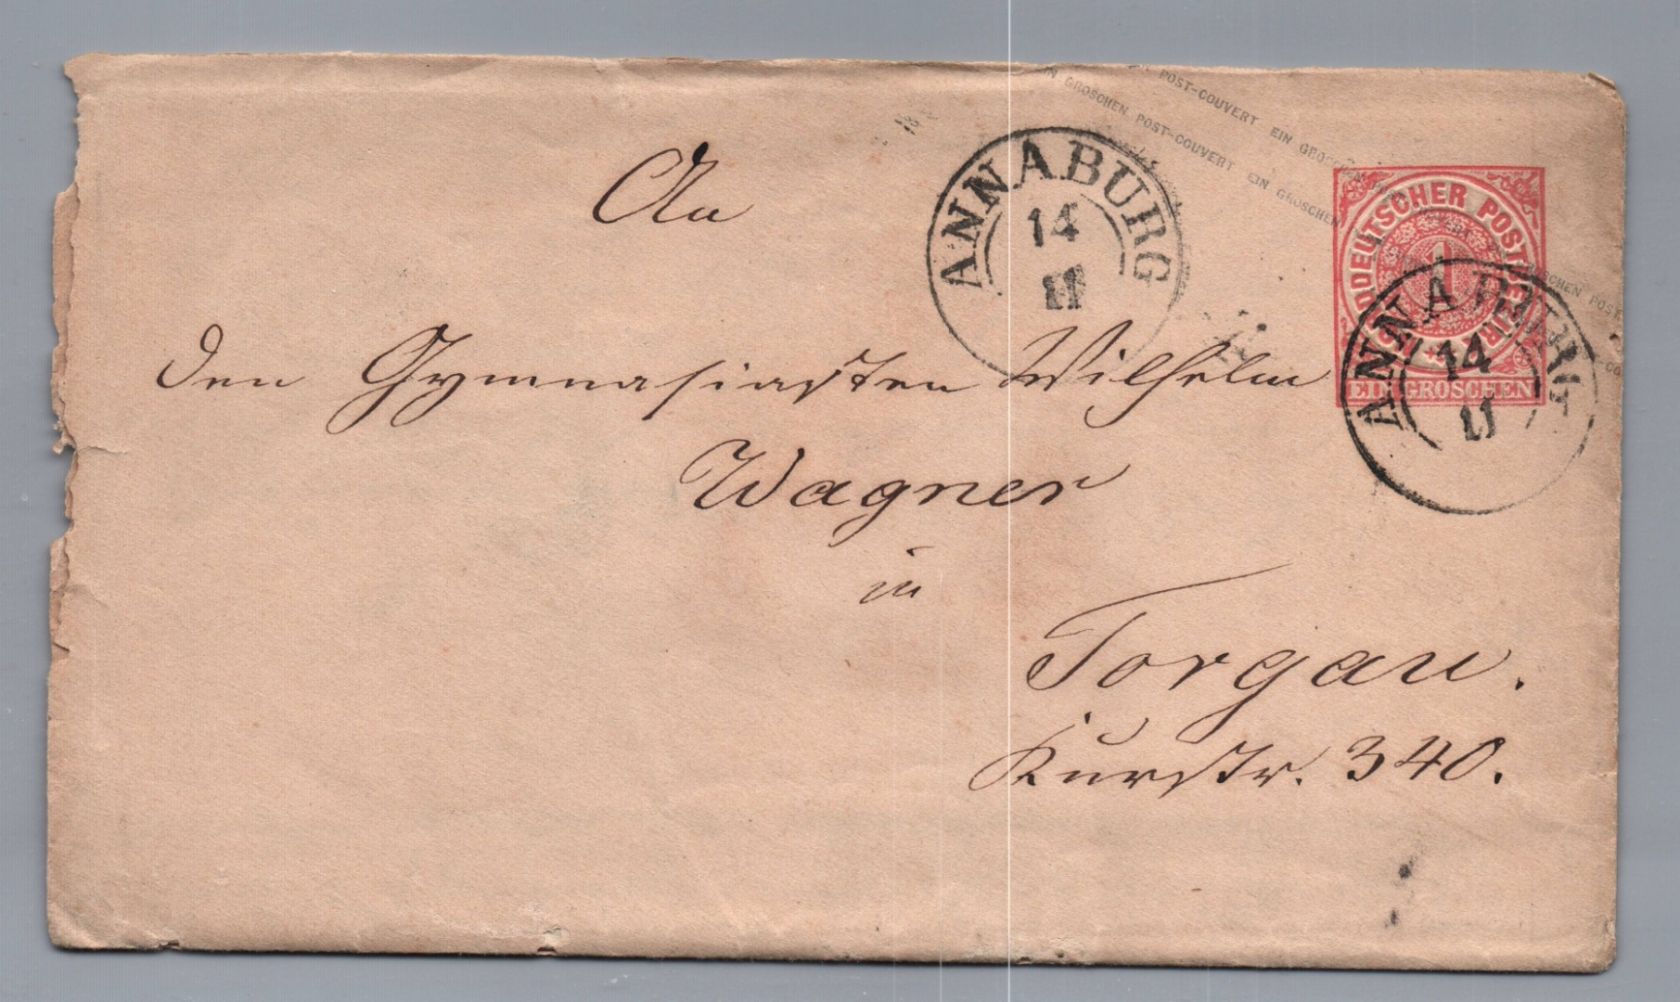 EIN GROSCHEN POST-COUVERT EIN GROSCHEN
POST-COUVERT EIN GROSCHEN
ANNABURG
14
11
NORDDEUTSCHER POSTBEZIRK
1
EIN GROSCHEN
ANNABURG
14
11
An
den Gymnasiasten Wilhelm
Wagner
in
Torgau.
Kurstr. 340.